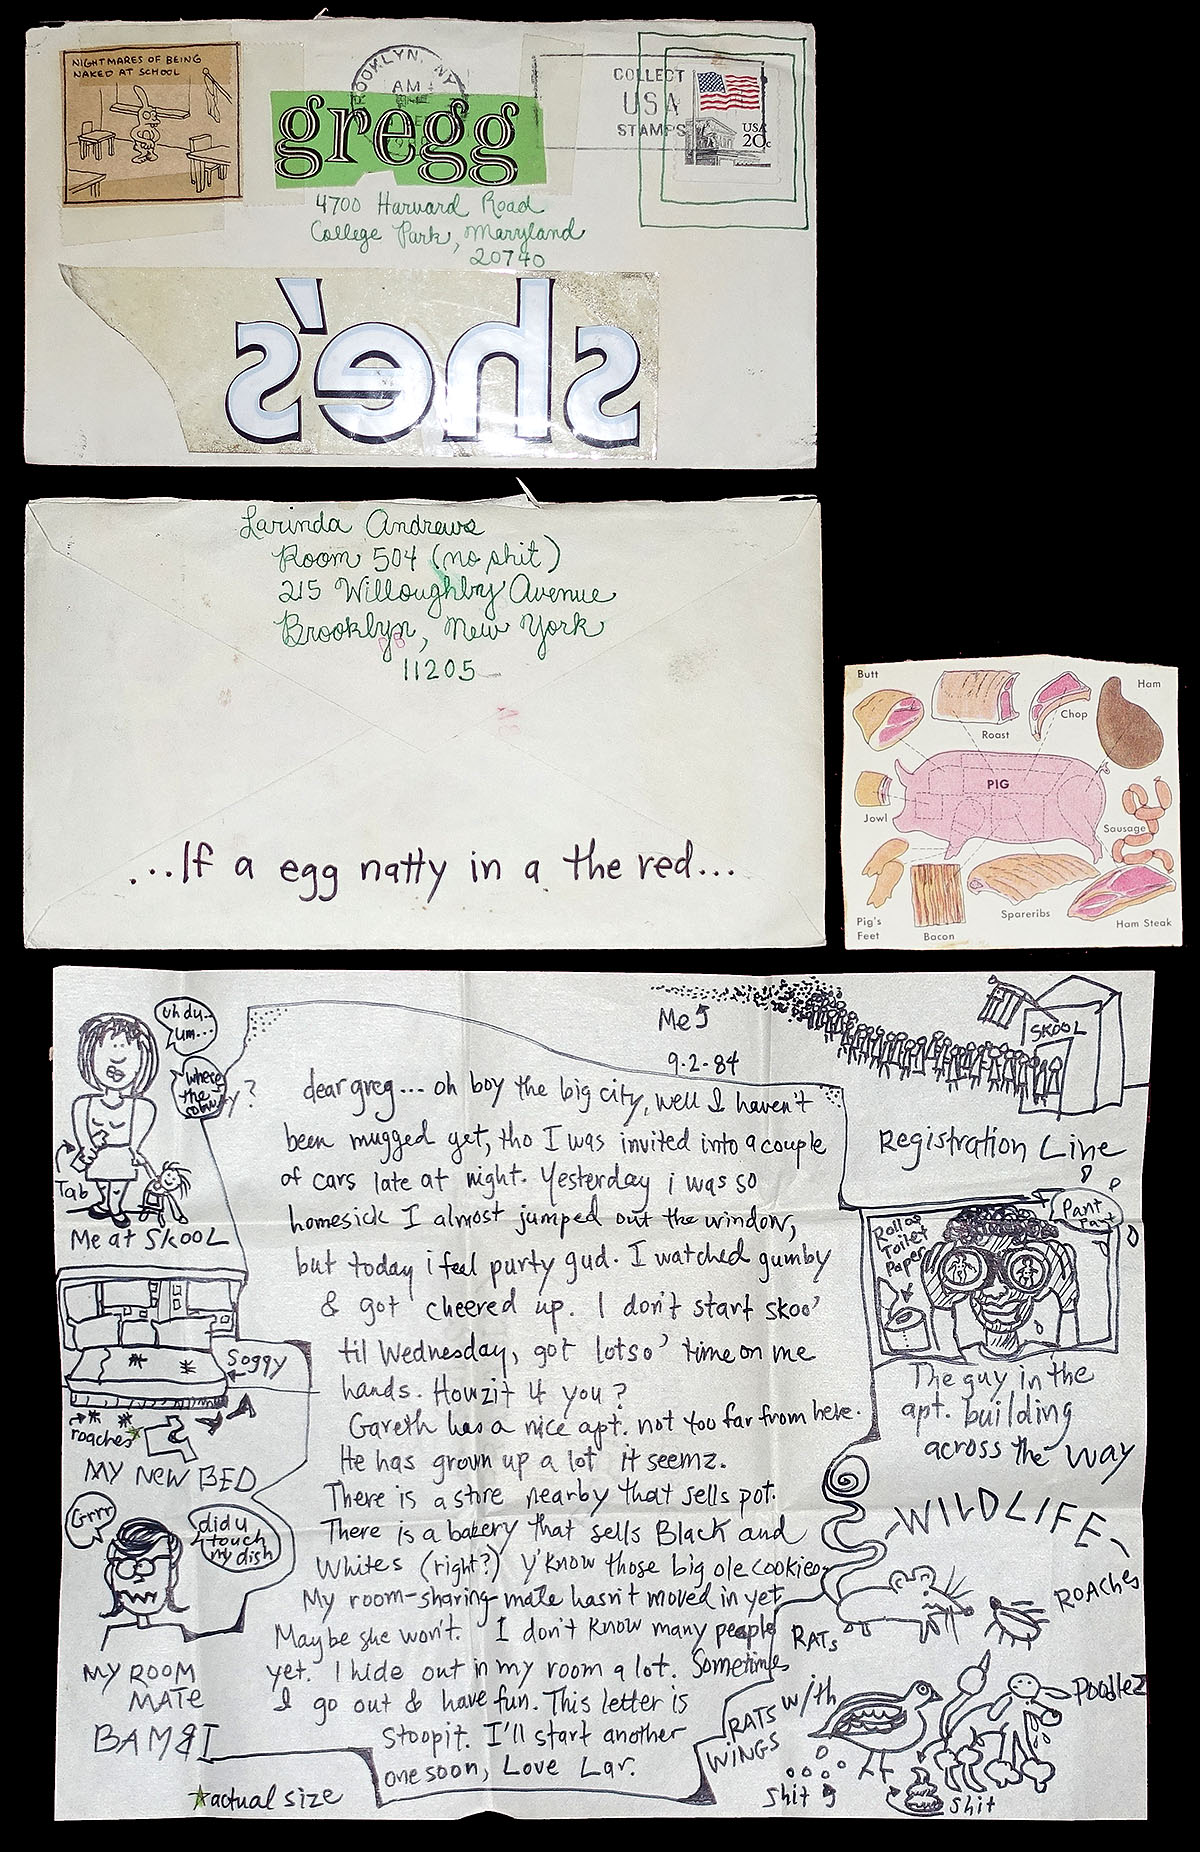 NIGHTMARES OF BEING
NAKED AT SCHOOL
BROOKLYN, NY
AM
COLLECT
USA
STAMPS
USA
20c
gregg
4700 Harvard Road
College Park, Maryland
20740
she's
Larinda Andrews
Room 504 (no shit)
215 Willoughby Avenue
Brooklyn, New York
11205
...If a egg natty in a the red...
Butt
Roast
Chop
Ham
PIG
Jowl
Sausage
Pig's
Feet
Bacon
Spareribs
Ham Steak
uh du..
um...
where
the
Tab
Me at SKOOL
soggy
roaches
MY NEW BED
Grrr
did u
touch
my dish
MY ROOM
MATE
BAMBI
*actual size
Me
9-2-84
dear greg... oh boy the big city, well I haven't
been mugged yet, tho I was invited into a couple
of cars late at night. Yesterday i was so
homesick I almost jumped out the window,
but today i feel purty gud. I watched gumby
& got cheered up. I don't start skoo'
til Wednesday, got lotso' time on me
hands. Howzit 4 you?
Gareth has a nice apt. not too far from here.
He has grown up a lot it seemz.
There is a store nearby that sells pot.
There is a bakery that sells Black and
Whites (right?) y'know those big ole cookies
My room-sharing-mate hasn't moved in yet
Maybe she won't. I don't know many people
yet. I hide out in my room a lot. Sometimes
I go out & have fun. This letter is
stoopit. I'll start another
one soon, Love Lar.
SKOOL
Registration Line
Pant
Pant
Roll of
Toilet
Paper
The guy in the
apt. building
across the way
WILDLIFE
ROACHes
RATs
RATS w/th
WINGS
POODLEZ
shit
shit